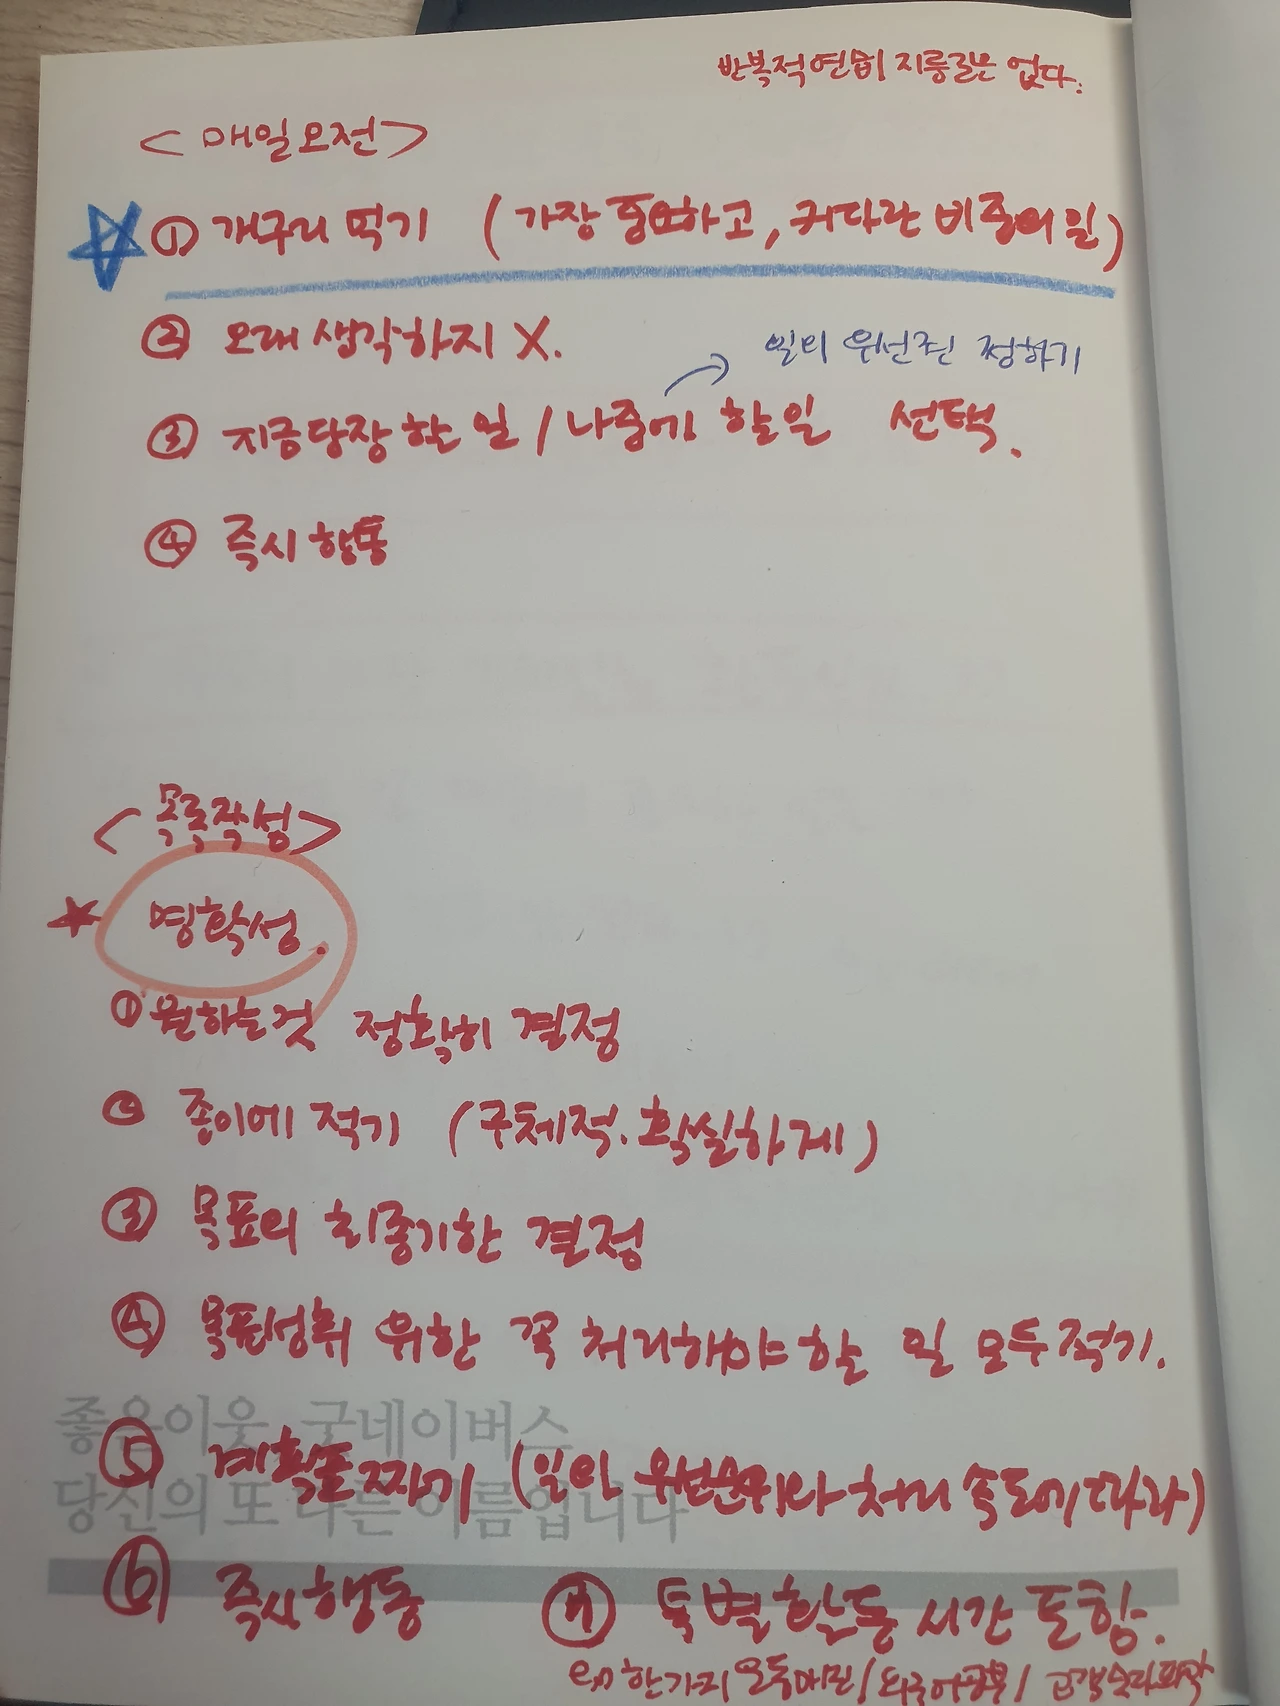 반복적연습이 지름길은 없다.
<매일오전>
① 개구리 먹기 (가장 중요하고, 커다란 비중의 일)
② 오래 생각하지 X.
일의 우선권 정하기
③ 지금당장 할 일 / 나중에 할일 선택.
④ 즉시행동
<목록작성>
명확성.
① 원하는것 정확히 결정
② 종이에 적기 (구체적. 확실하게)
③ 목표의 최종기한 결정
④ 목표성취 위한 꼭 처리해야 할 일 모두적기.
좋은이웃, 굿네이버스
당신의 또 다른 이름입니다
⑤ 계획표짜기 (일의 우선순위와 처리 속도에 따라)
⑥ 즉시행동 ⑦ 특별활동 시간 포함.
ex) 한가지 운동매진 / 외국어공부 /